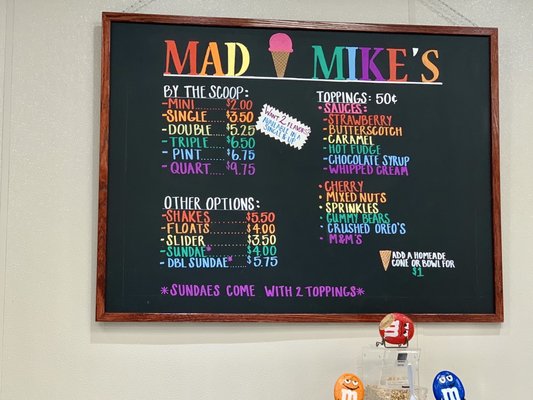 MAD MIKE'S
BY THE SCOOP:
-MINI........$2.00
-SINGLE......$3.50
-DOUBLE......$5.25
-TRIPLE......$6.50
- PINT.......$6.75
- QUART......$9.75
WANT 2 FLAVORS
OTHER OPTIONS:
-SHAKES......$5.50
-FLOATS......$4.00
-SLIDER......$3.50
-SUNDAE*.....$4.00
-DBL SUNDAE*...$5.75
*SUNDAES COME WITH 2 TOPPINGS*
TOPPINGS: 50¢
• SAUCES:
-STRAWBERRY
-BUTTERSCOTCH
-CARAMEL
-HOT FUDGE
-CHOCOLATE SYRUP
-WHIPPED CREAM
• CHERRY
• MIXED NUTS
• SPRINKLES
• GUMMY BEARS
• CRUSHED OREO'S
• M&M'S
ADD A HOMEADE
CONE OR BOWL FOR
$1
m
m